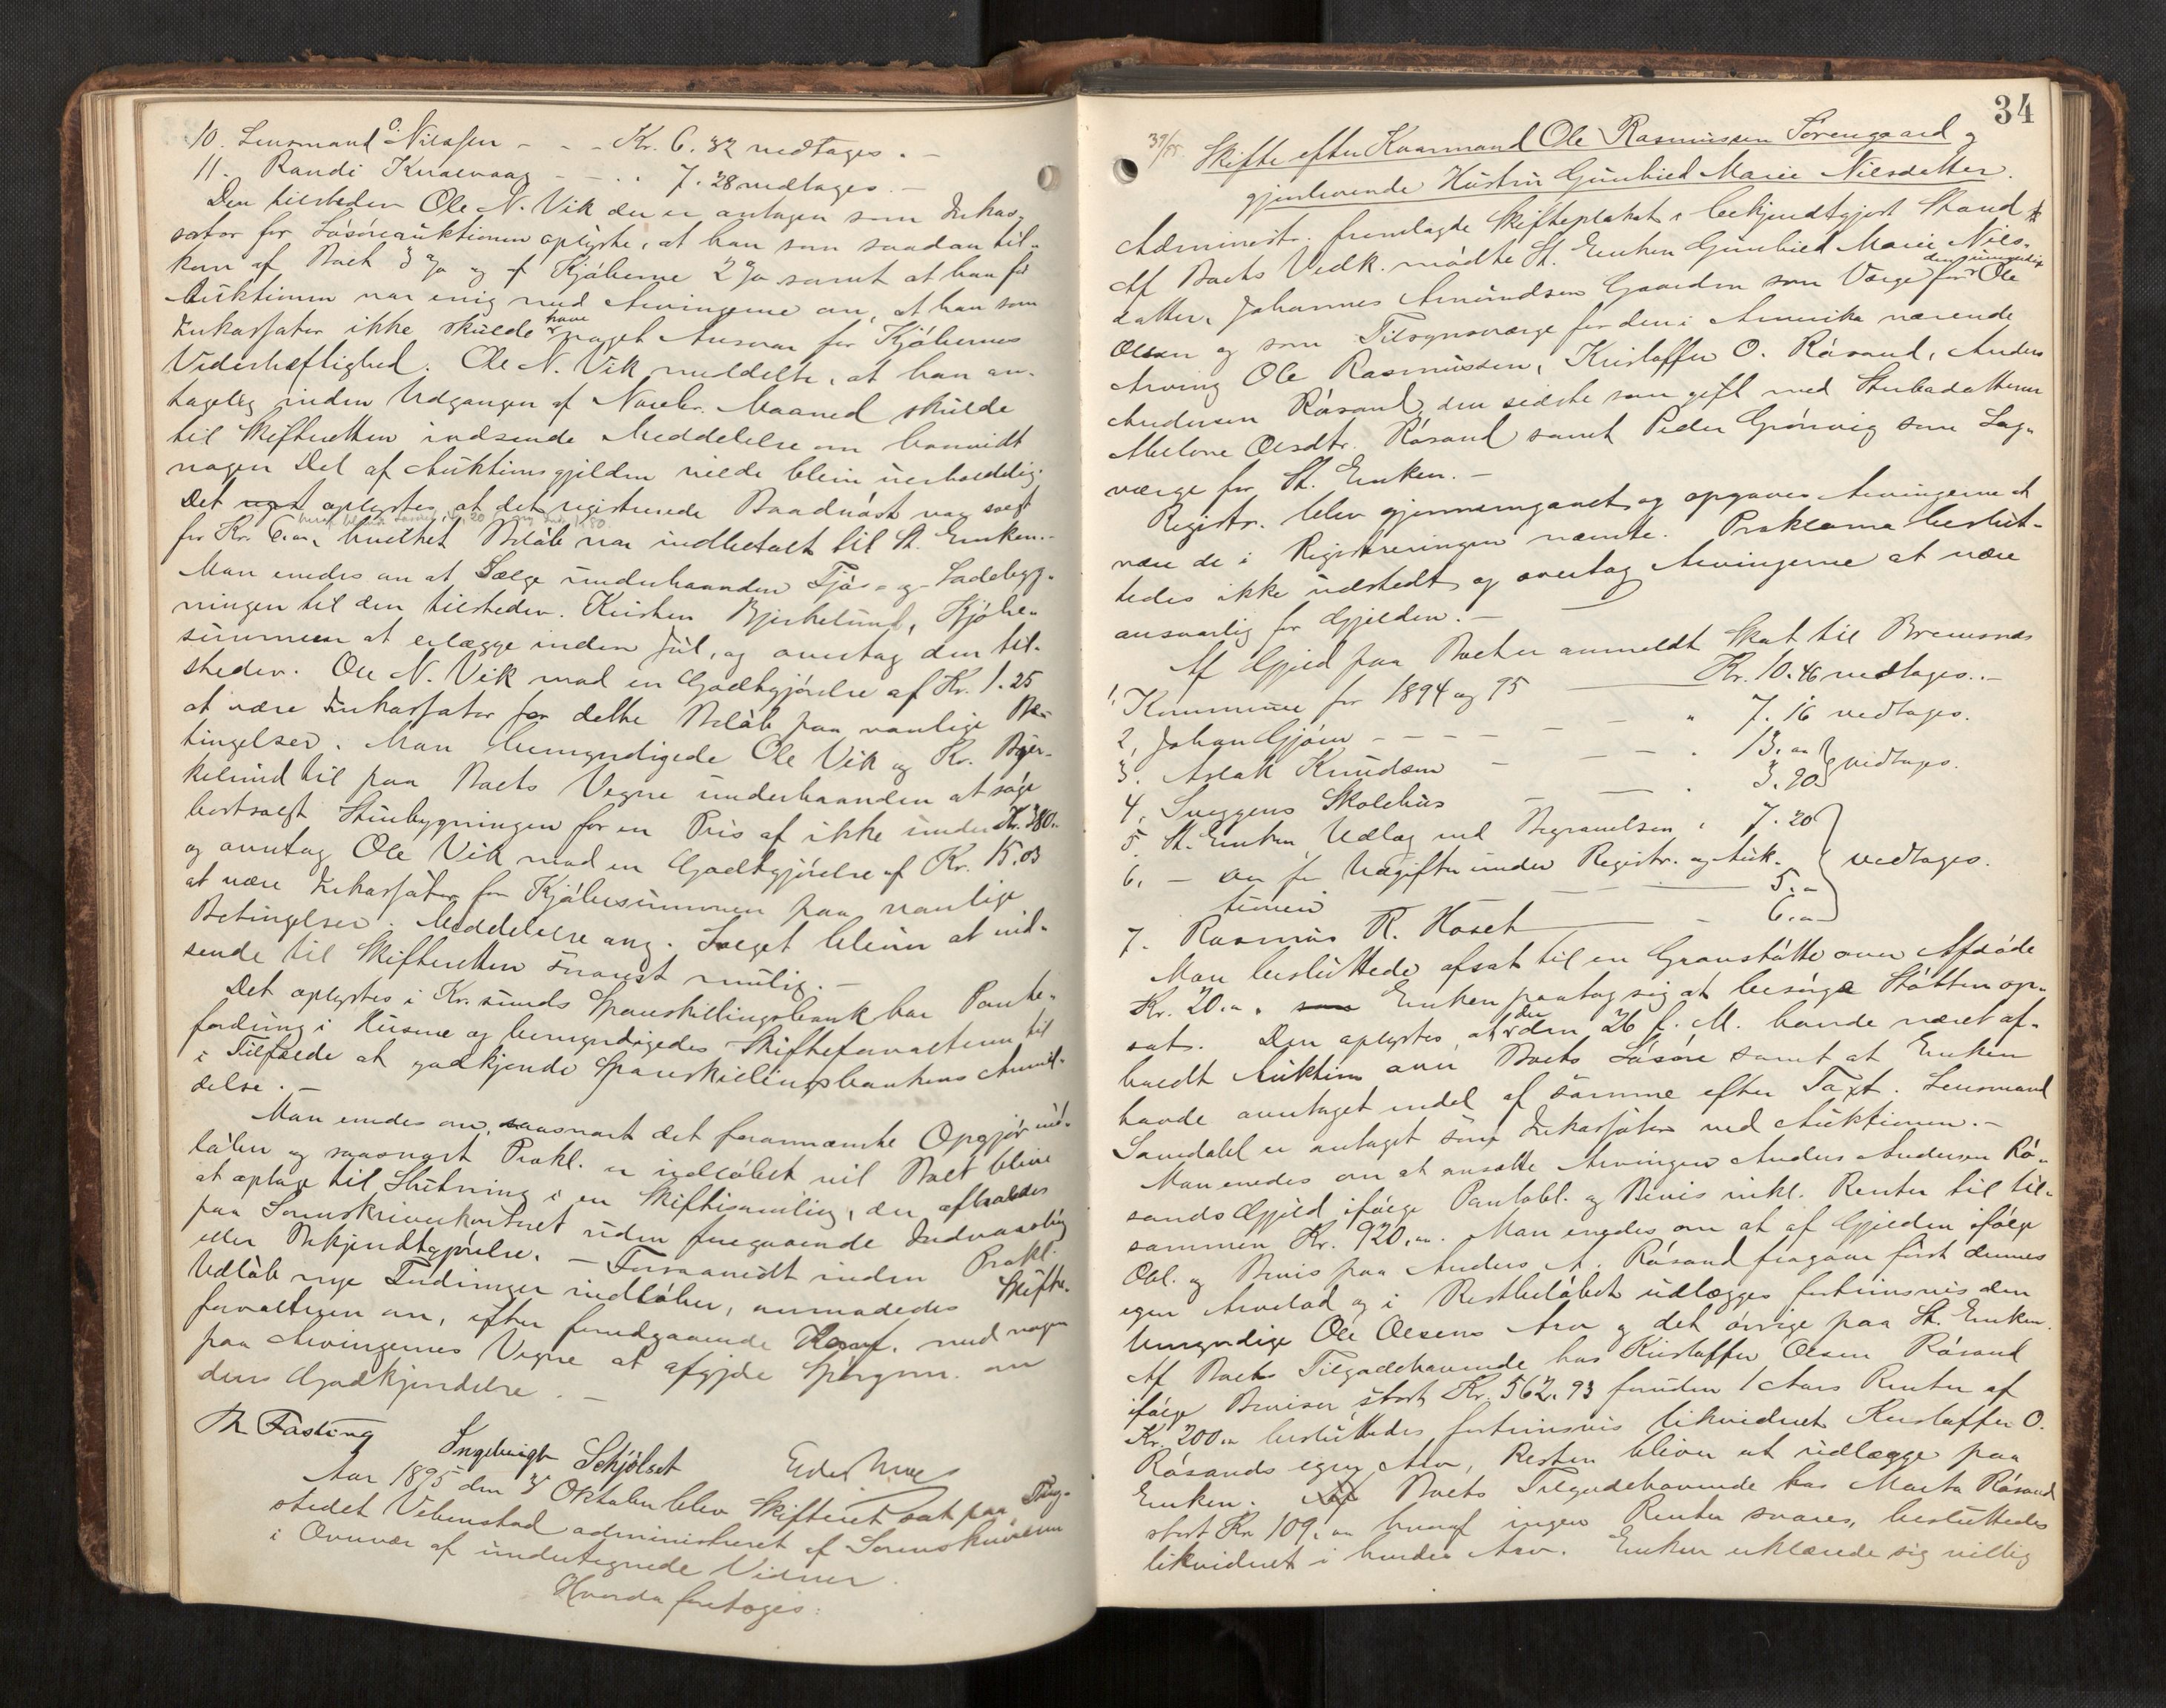 10. Lensmand O. Nilssen - - - Kr. 6.32 vedtages. -
11. Randi Knarvaag - - . . 7.28 vedtages. -
Den tilstedev. Ole N. Vik der er antagen som Inkas-
sator for Løsøreauktionen oplyste, at han som saadan til-
kom af Boet 3 % og af Kjøberne 2 % samt at han før
Auktionen var enig med Arvingerne om, at han som
Inkassator ikke skulde have noget Ansvar for Kjøbernes
Vederhæftighed. Ole N. Vik meddelte, at han an-
tagelig inden Udgangen af Novebr. Maaned skulde
til Skifteretten indsende Meddelelse om hvorvidt
nogen Del af Auktionsgjælden vilde blive uerholdelig.
Det oplystes at det registrerede Baadnøst var solgt
for Kr. 6.00, hvilket Beløb var indbetalt til St. Enken. -
Man enedes om at Sælge underhaanden Fjøs- og Ladebyg-
ningen til den tilstedev. Kristen Bjerkelund, Kjøbe-
summen at erlægge inden Jul, og overtog den til-
stedev. Ole N. Vik mod en Godtgjørelse af Kr. 1.25
at være Inkassator for dette Beløb paa vanlige Be-
tingelser. Man bemyndigede Ole Vik og Kr. Bjer-
kelund til paa Boets Vegne underhaanden at søge
bortsolgt Stuebygningen for en Pris af ikke under Kr. 380.
og overtog Ole Vik mod en Godtgjørelse af Kr. 15.03
at være Inkassator for Kjøbesummen paa vanlige
Betingelser. Meddelelse ang. Salget bliver at ind-
sende til Skifteretten snarest mulig. -
Det oplystes i Kr.sunds Spareskillingsbank har Pante-
fordring i Husene og bemyndigedes Skifteforvalteren til
i Tilfælde at godkjende Spareskillingsbankens Anmel-
delse. -
Man enedes om, saasnart det forannævnte Opgjør ind-
løber og saasnart Prokl. er indløbet vil Boet blive
at optage til Slutning i en Skiftesamling, der afholdes
paa Sorenskriverkontoret uden foregaaende Indvarsling
eller Bekjendtgjørelse. - Forsaavidt inden Prokl.
Udløb nye Fordringer indløber, anmodedes Skifte-
forvalteren om, efter forudgaaende Konf. med nogen
paa Arvingernes Vegne at afgjøre Spørgsm. om
deres Godkjendelse. -
Th Fasting Ingebrigt Schjølset
Aar 1895 den 3 Oktober blev Skifteret sat paa Thing-
stedet Vebenstad administreret af Sorenskriveren
i Overvær af undertegnede Vidner.
Hvorda foretoges:
34
Skifte efter Kaarmand Ole Rasmussen Sørengaard og
gjenlevende Hustru Gunhild Marie Nilsdatter.
Administr. fremlagde Skifteplakat i bekjendtgjort Stand
Af Boets Vedk. mødte St. Enken Gunhild Marie Nils-
datter, Johannes Amundsen Gaarden som Værge for den umyndige Ole
Olsen og som Tilsynsværge for den i Amerika værende
Arving Ole Rasmussen, Kristoffer O. Røsand, Anders
Andersen Røsand, den sidste som gift med Sterbodatteren
Olsdtr. Røsand samt Peder Grønvig som Lag-
værge for St. Enken. -
Registr. blev gjennemgaaet og opgaves Arvingerne at
være de i Registreringen nævnte. Proklama beslut-
tedes ikke udstedt og overtog Arvingerne at være
ansvarlig for Gjælden. -
Af Gjæld paa Boet er anmeldt Skat til Bremsnes
1. Kommune for 1894 og 95 Kr. 10.46 vedtages. -
2. Johan Gjøen - - - - - " 7.16 vedtages.
3. Aslak Knudsen - - . 13.00
4. Sveggens Skolehus - - . 3.90 vedtages.
5. St. Enken, Udlæg ved Begravelsen " 7.20
6. - do for Udgifter under Registr. og Auk-
tionen - - - 5.00 vedtages.
7. Rasmus R. Hoset - 6.00
Man besluttede afsat til en Gravstøtte over Afdøde
Kr. 20.00, Enken paatog sig at besørge Støtten op-
sat. Den oplystes, at der den 26 f. M. havde været af-
holdt Auktion over Boets Løsøre samt at Enken
havde overtaget endel af samme efter Taxt. Lensmand
Sandahl er antaget som Inkassator ved Auktionen. -
Man enedes om at ansætte Arvingen Anders Andersen Rø-
sands Gjæld ifølge Pantobl. og Bevis inkl. Renter til til-
sammen Kr. 920.00. Man enedes om at af Gjælden ifølge
Obl. og Bevis paa Anders A. Røsand fragaar først dennes
egen Arvelod og i Restbeløbet udlægges fortrinsvis den
Umyndige Ole Olsens Arv og det øvrige paa St. Enken.
Af Boets Tilgodehavende hos Kristoffer Olsen Røsand
ifølge Beviser stort Kr. 562.93 foruden 1 Aars Renter af
Kr. 200.00 besluttedes fortrinsvis likvideret Kristoffer O.
Røsands egen Arv, Resten bliver at udlægge paa
Enken. Boets Tilgodehavende hos Marta Røsand
stort Kr. 109.00 hvoraf ingen Renter svares, besluttedes
likvideret i hendes Arv. Enken erklærede sig villig